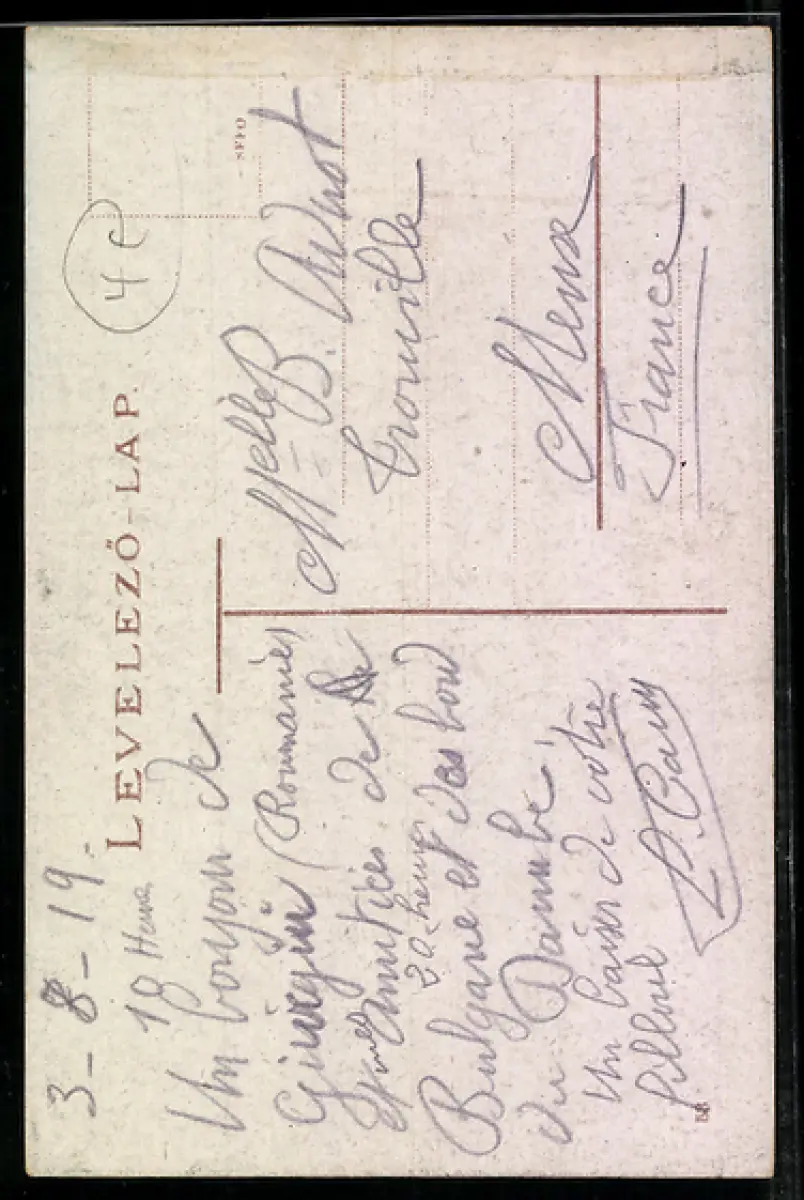 3-8-19.-
LEVELEZŐ-LAP.
4 e
18 Heures
Un bonjour de
Giurgiu (Roumanie)
et amitiés de la
20 heures
Bulgarie et des bords
du Danube,
Un baiser de votre
filleul
Melle B.
Trouville
Meuse
France